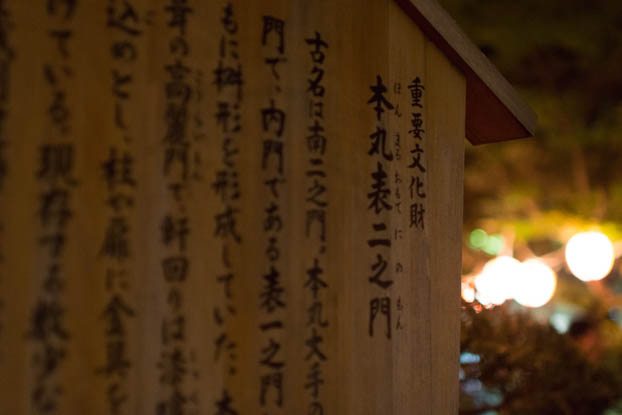 重要文化財
ほんまるおもてにのもん
本丸表二之門
古名は南二之門。本丸大手の
門で、内門である表一之門
もに桝形を形成していた。本
葺の高麗門で軒回りは漆喰
込めとし、柱や扉に金具を
けている。現存する数少な